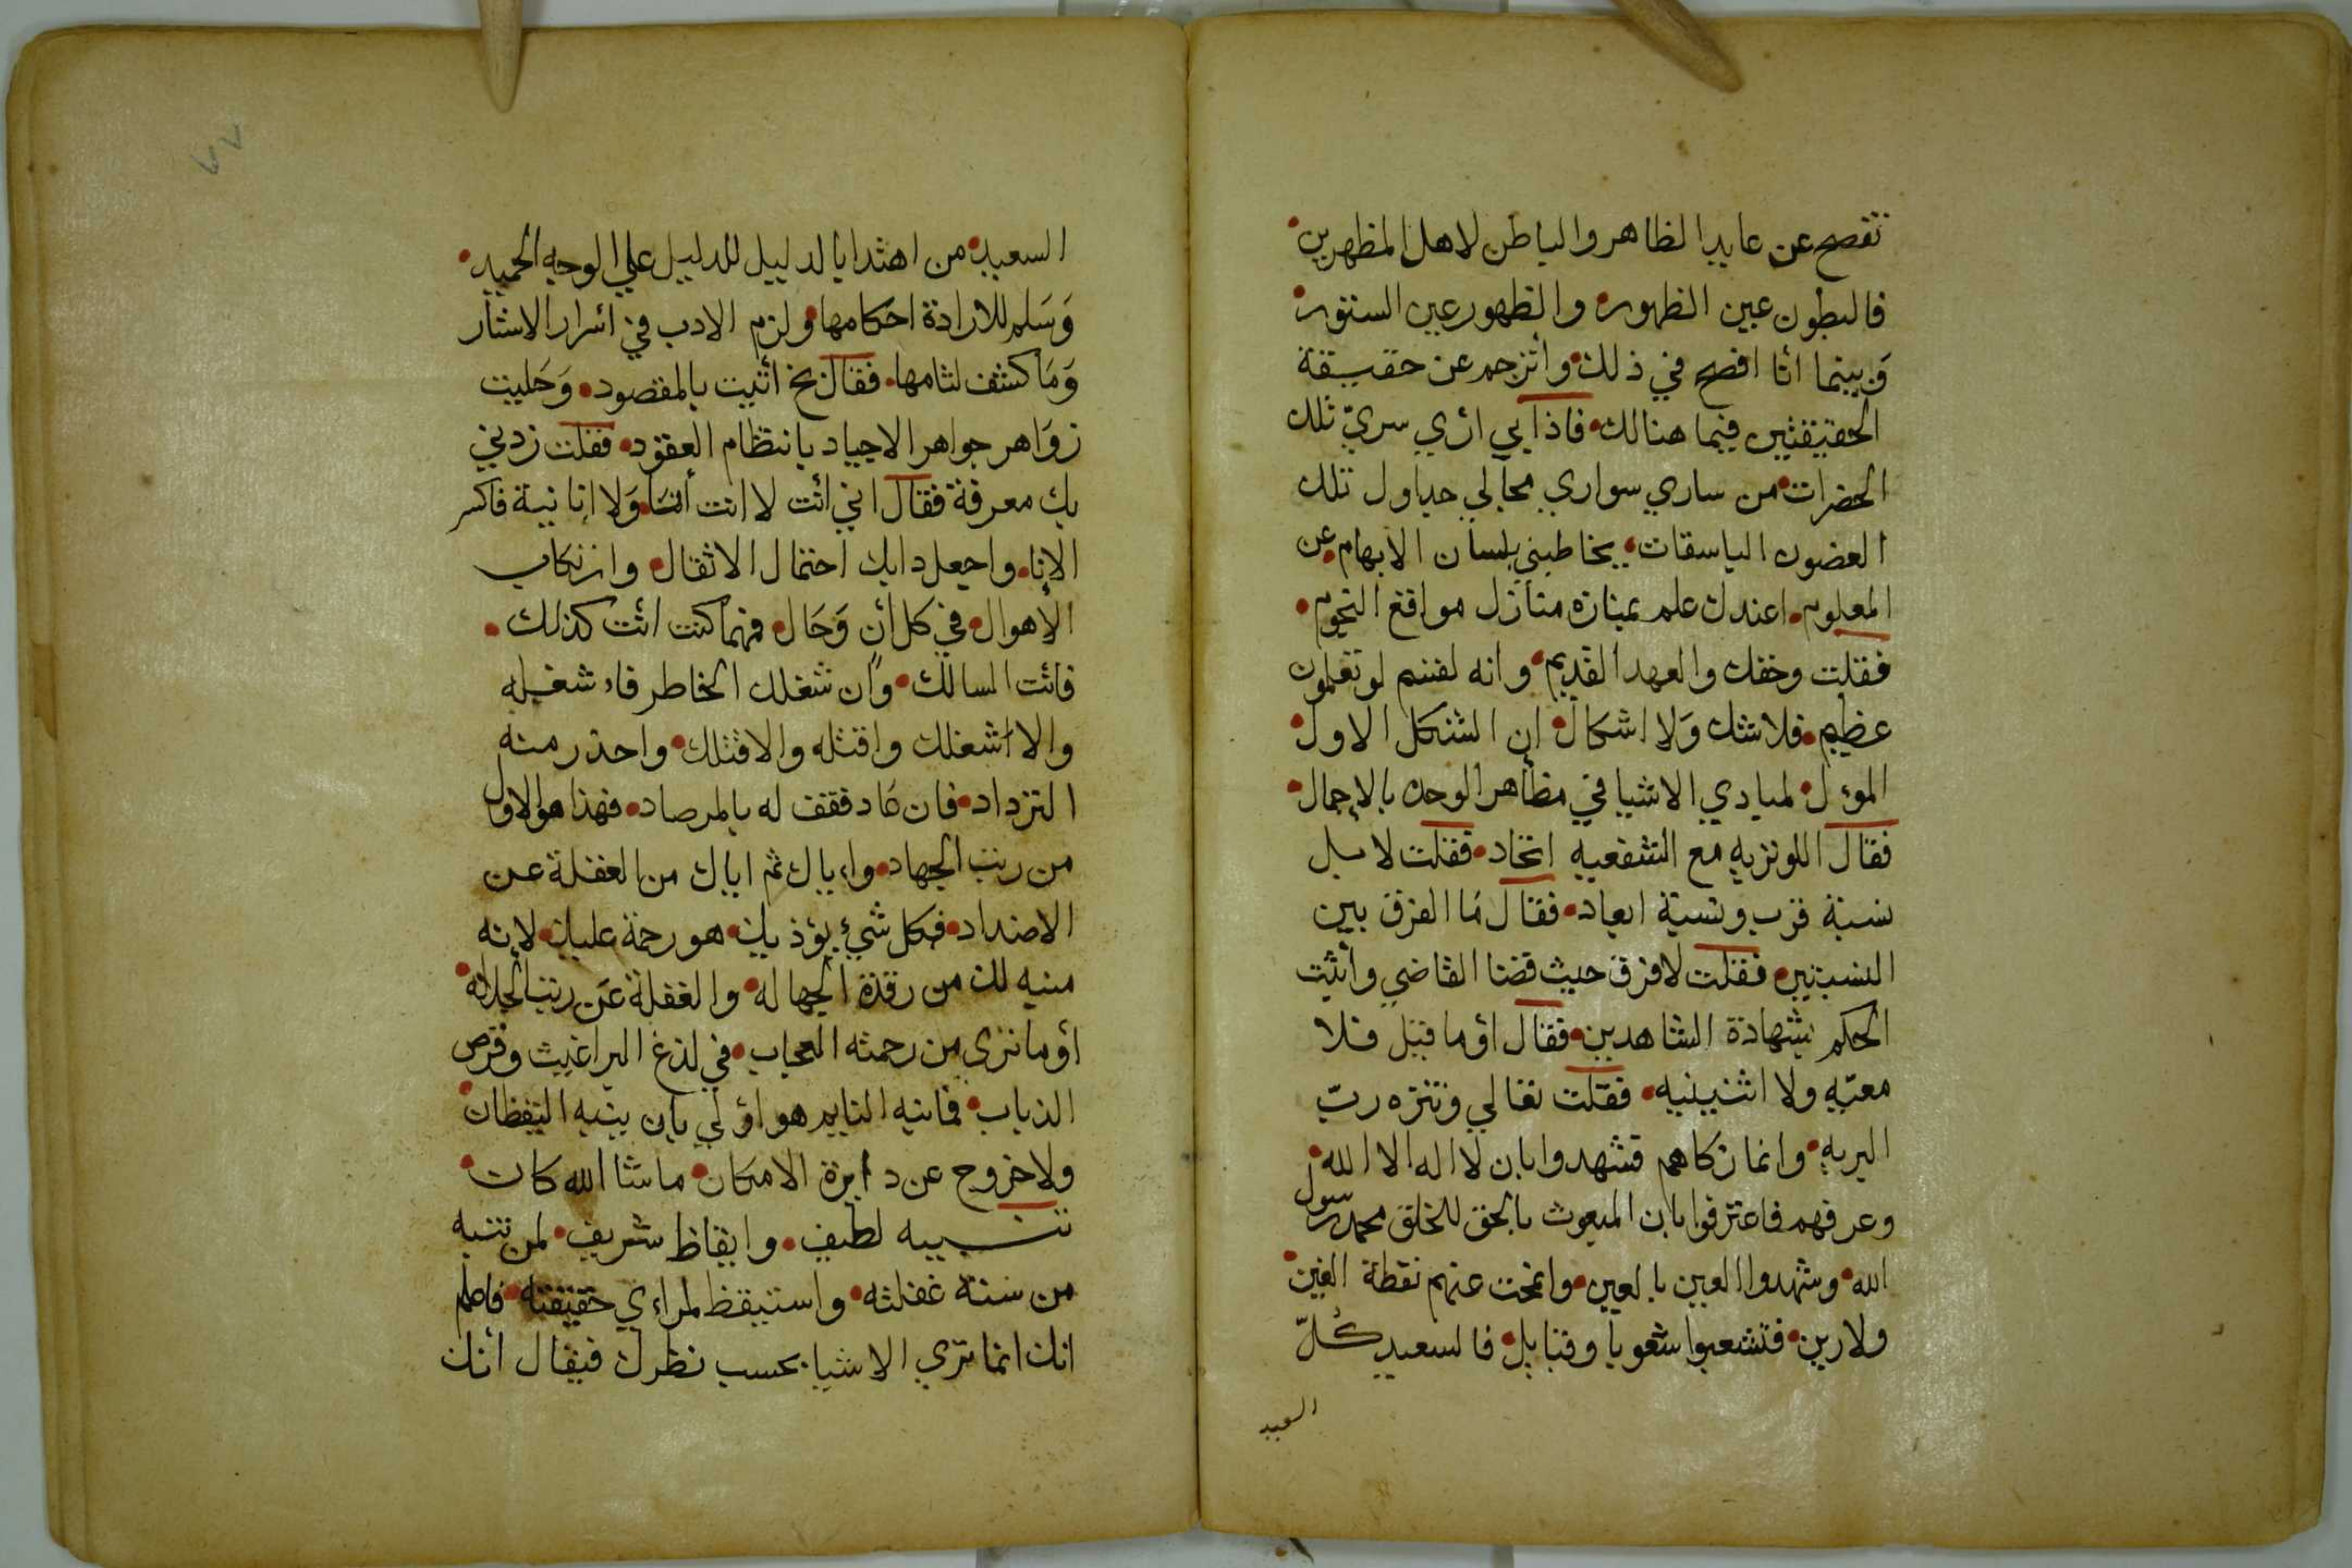 تفصح عن عايد الظاهر والباطن لاهل المظهرين
فالبطون عين الظهور والظهور عين الستور
وبينما انا افصح في ذلك واترجم عن حقيقة
الحقيقتين فيما هنالك فاذا بي اري سري تلك
الحضرات من ساري سواري مجالي جداول تلك
الغصون الباسقات يخاطبني بلسان الابهام عن
المعلوم اعندك علم بمنازه منازل مواقع النجوم
فقلت وحقك والعهد القديم وانه لقسم لو تعلمون
عظيم فلا شك ولا اشكال ان الشكل الاول
الموءل لمبادي الاشيا في مظاهر الوحده بالاجمال
فقال اللوتريه مع الشفعيه اتحاد فقلت لا بل
نسبة قرب ونسبة ابعاد فقال ما الفرق بين
النسبتين فقلت لا فرق حيث قضا القاضي واثبت
الحكم بشهادة الشاهدين فقال اوما قيل فلا
معيه ولا اثنينيه فقلت تعالي وتنزه رب
البريه وانما زكاهم فشهدوا بان لا اله الا الله
وعرفهم فاعترفوا بان المبعوث بالحق للخلق محمد رسول
الله وشهدوا العين بالعين وانمحت عنهم نقطة الغين
ولا رين فتشعبوا شعوبا وقبايل فالسعيد كل
السعيد
السعيد من اهتدا بالدليل للدليل علي الوجه الحميد
وسلم للارادة احكامها ولزم الادب في اسرار الاستار
وما كشف لثامها فقال بخ اتيت بالمقصود وحليت
زواهر جواهر الاجياد بانتظام العقود فقلت زدني
بك معرفة فقال اني انت لا انت انت ولا انا نية فاكسر
الإنا واجعل دابك احتمال الاثقال وارتكاب
الاهوال في كل أن وحال فمهما كنت انت كذلك
فانت السالك وان شغلك الخاطر فاشغله
والا اشغلك واقتله والا قتلك واحذر منه
الترداد فان عاد فقف له بالمرصاد فهذا هو الاول
من رتب الجهاد واياك ثم اياك من الغفلة عن
الاضداد فكل شيء يؤذيك هو رحمة عليك لانه
منبه لك من رقدة الجهاله والغفلة عن رتب الجلاله
أوما ترى من رحمته العجاب في لذغ البراغيث وقرص
الذباب فما نبه النايم هو اولي بان ينبه اليقظان
ولا خروج عن دايرة الامكان ما شا الله كان
تنبيه لطيف وايقاظ شريف لمن تنبه
من سنة غفلته واستيقظ لمراءي حقيقته فاعلم
انك انما تري الاشيا بحسب نظرك فيقال أنك